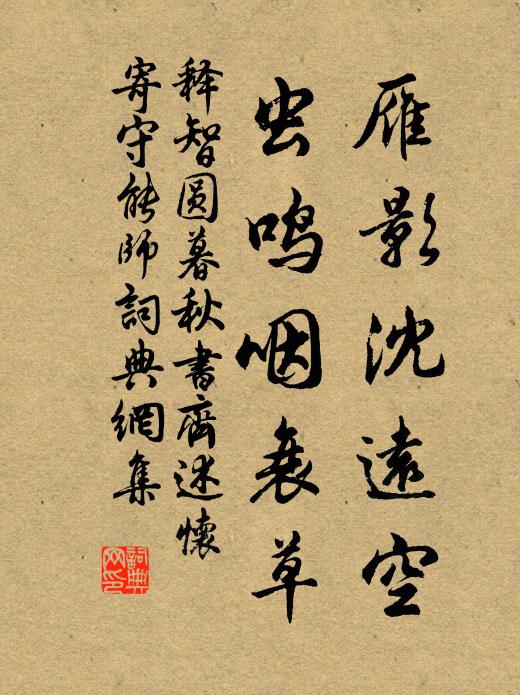 雁影沈遠空
虫鳴咽衰草
释智圆暮秋書齊述懷
寄守能師詞典網集
詞典网印